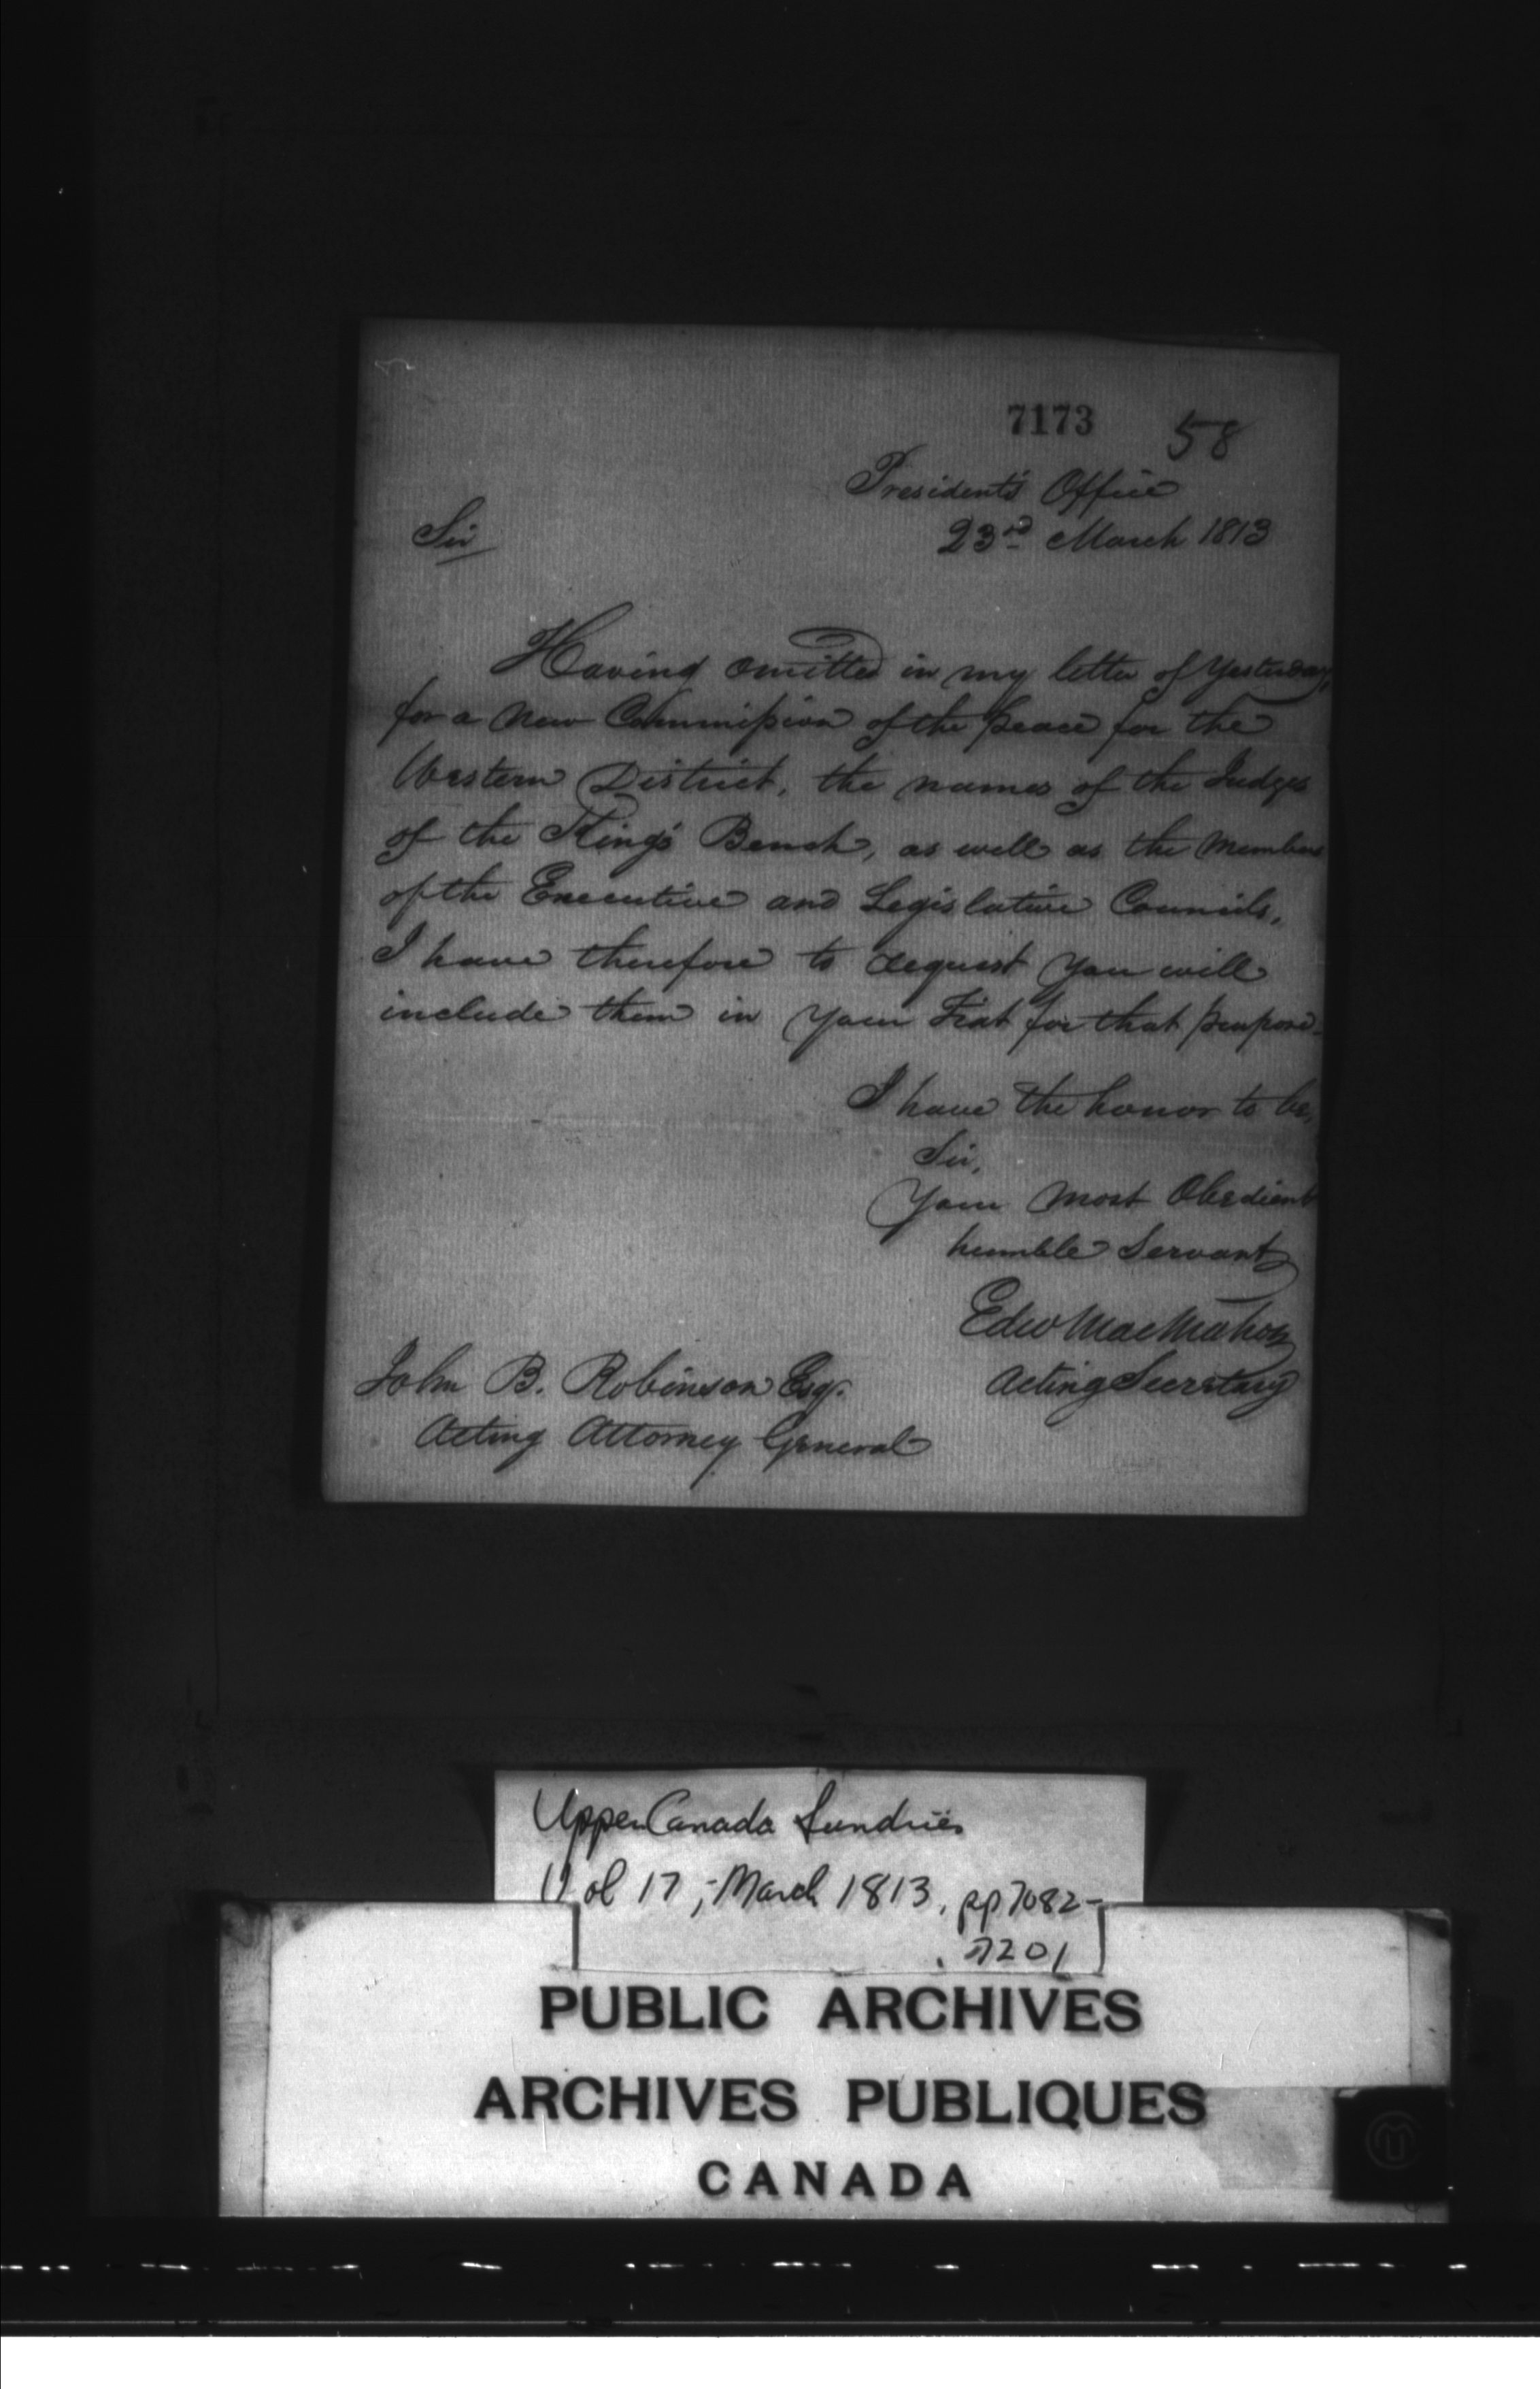 7173 58
President's Office
23rd March 1813
Sir
Having omitted in my letter of Yesterday,
for a New Commission of the peace for the
Western District, the names of the Judges
of the King's Bench, as well as the Members
of the Executive and Legislative Councils,
I have therefore to request You will
include them in Your Fiat for that purpose.
I have the honor to be,
Sir,
Your most Obedient
humble Servant
Edw MacMahon
Acting Secretary
John B. Robinson Esqr.
Acting Attorney General
Upper Canada Sundries
Vol 17, - March 1813, pp 7082-
7201
PUBLIC ARCHIVES
ARCHIVES PUBLIQUES
CANADA